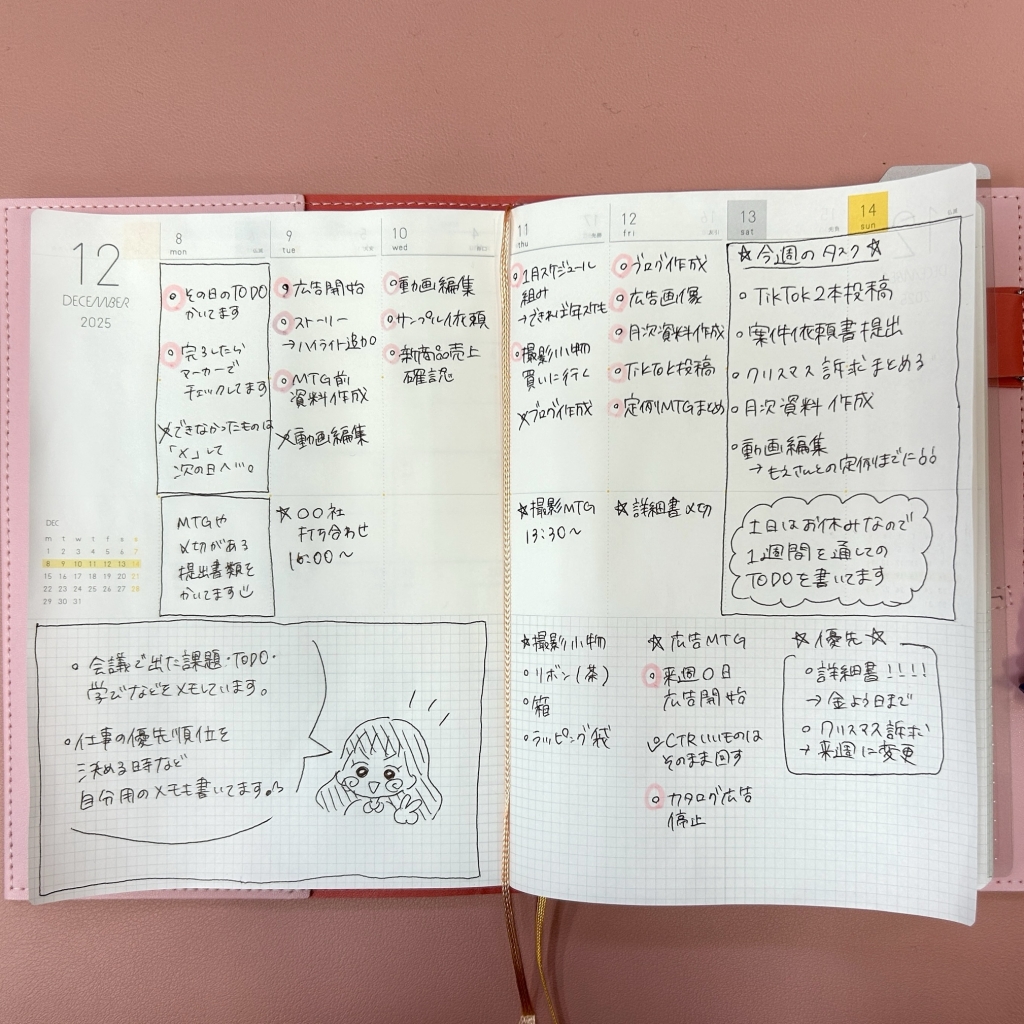 12
DECEMBER
2025
8
mon
その日のTODO
かいてます
完了したら
マーカーで
チェックしてます
できなかったものは
「×」して
次の日へ…。
MTGや
〆切がある
提出書類を
かいてます
9
tue
広告開始
ストーリー
→ハイライト追加
MTG前
資料作成
×動画編集
☆○○社
打ち合わせ
16:00～
10
wed
動画編集
サンプル依頼
新商品売上
確認
DEC
m t w t f s s
1 2 3 4 5 6 7
8 9 10 11 12 13 14
15 16 17 18 19 20 21
22 23 24 25 26 27 28
29 30 31
。会議で出た課題・TODO・
学びなどをメモしています。
。仕事の優先順位を
決める時など
自分用のメモも書いてます。
11
thu
1月スケジュール
組み
→できれば年末も
撮影小物
買いに行く
×ブログ作成
☆撮影MTG
13:30～
12
fri
ブログ作成
広告画像
月次資料作成
TikTok投稿
定例MTGまとめ
☆詳細書〆切
13
sat
14
sun
☆今週のタスク☆
。TikTok2本投稿
。案件依頼書提出
。クリスマス訴求まとめる
。月次資料作成
。動画編集
→もえさんとの定例までに
土日はお休みなので
1週間を通しての
TODOを書いてます
☆撮影小物
。リボン(茶)
。箱
。ラッピング袋
☆広告MTG
。来週〇日
広告開始
CTRいいものは
そのまま回す
。カタログ広告
停止
☆優先☆
。詳細書!!!!
→金よう日まで
。クリスマス訴求
→来週に変更